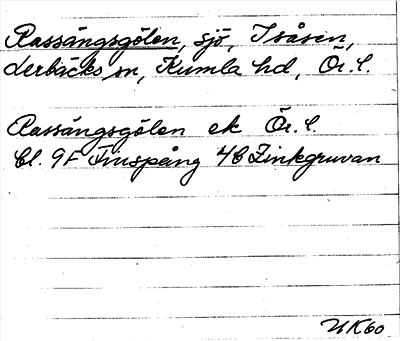 Rassängsgölen, sjö, Isåsen,
Lerbäcks sn, Kumla hd, Ör. l.
Rassängsgölen ek Ör. l.
bl. 9F Finspång 4C Zinkgruvan
UK60